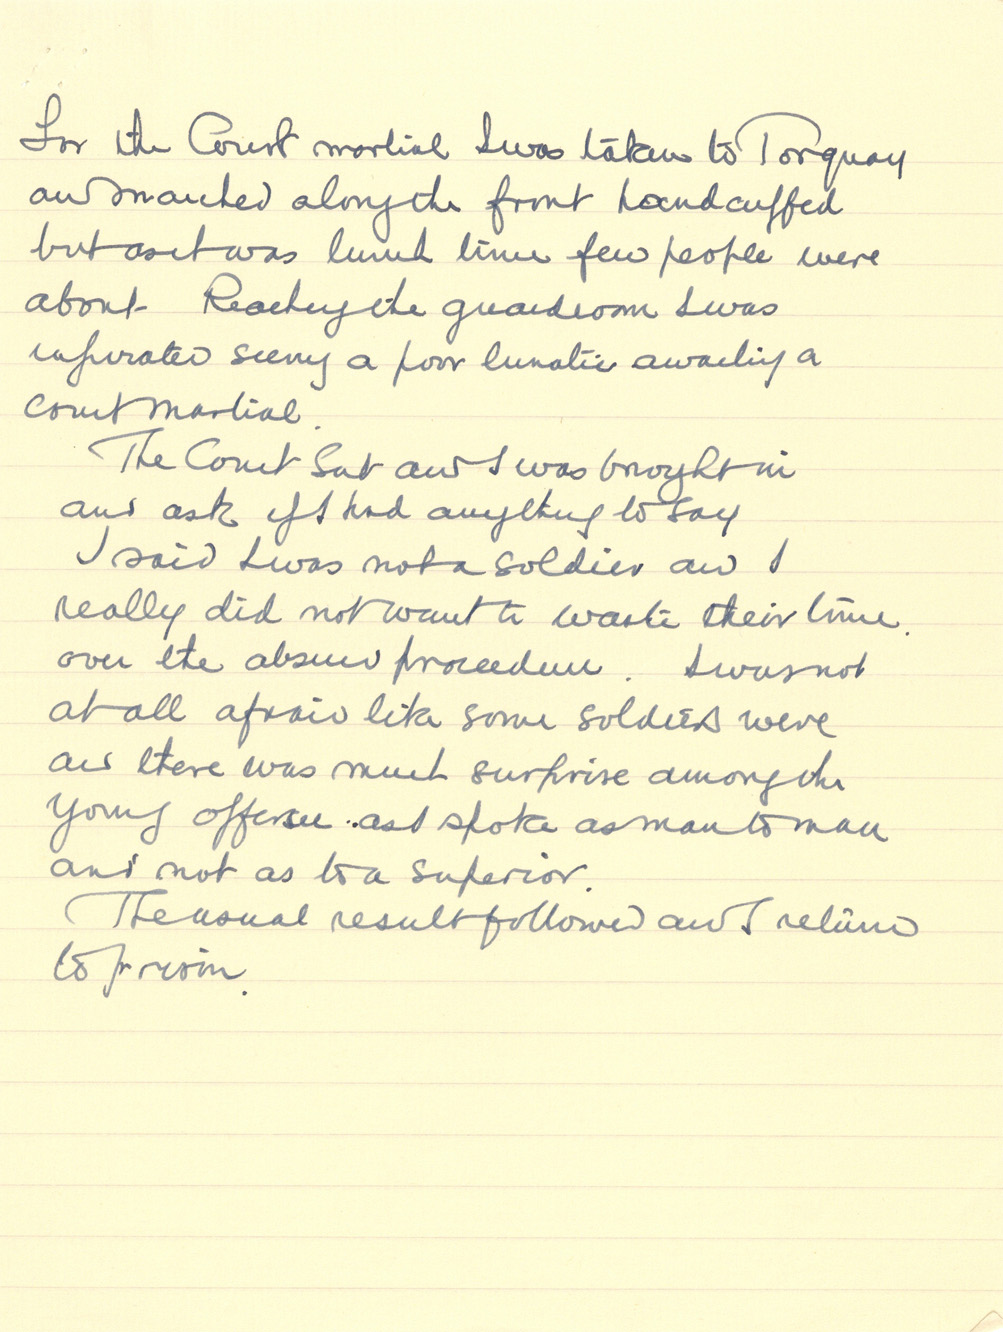 For the Court martial I was taken to Torquay
and marched along the front handcuffed
but as it was lunch time few people were
about. Reaching the guardroom I was
infuriated seeing a poor lunatic awaiting a
court martial.
The Court Sat and I was brought in
and ask if I had anything to say
I said I was not a soldier and I
really did not want to waste their time.
over the absurd procedure. I was not
at all afraid like some soldiers were
and there was much surprise among the
young officers as I spoke as man to man
and not as to a superior.
The usual result followed and I return
to prison.